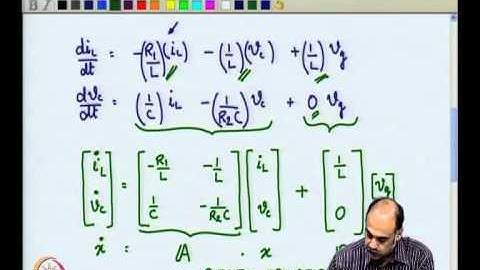 diL/dt = -(R1/L)(iL) -(1/L)(vc) +(1/L) vg
dvc/dt = (1/C) iL -(1/R2C) vc + 0 vg
[i̇L v̇c] = [-R1/L -1/L 1/C -1/R2C] [iL vc] + [1/L 0] [vg]
ẋ = A . x